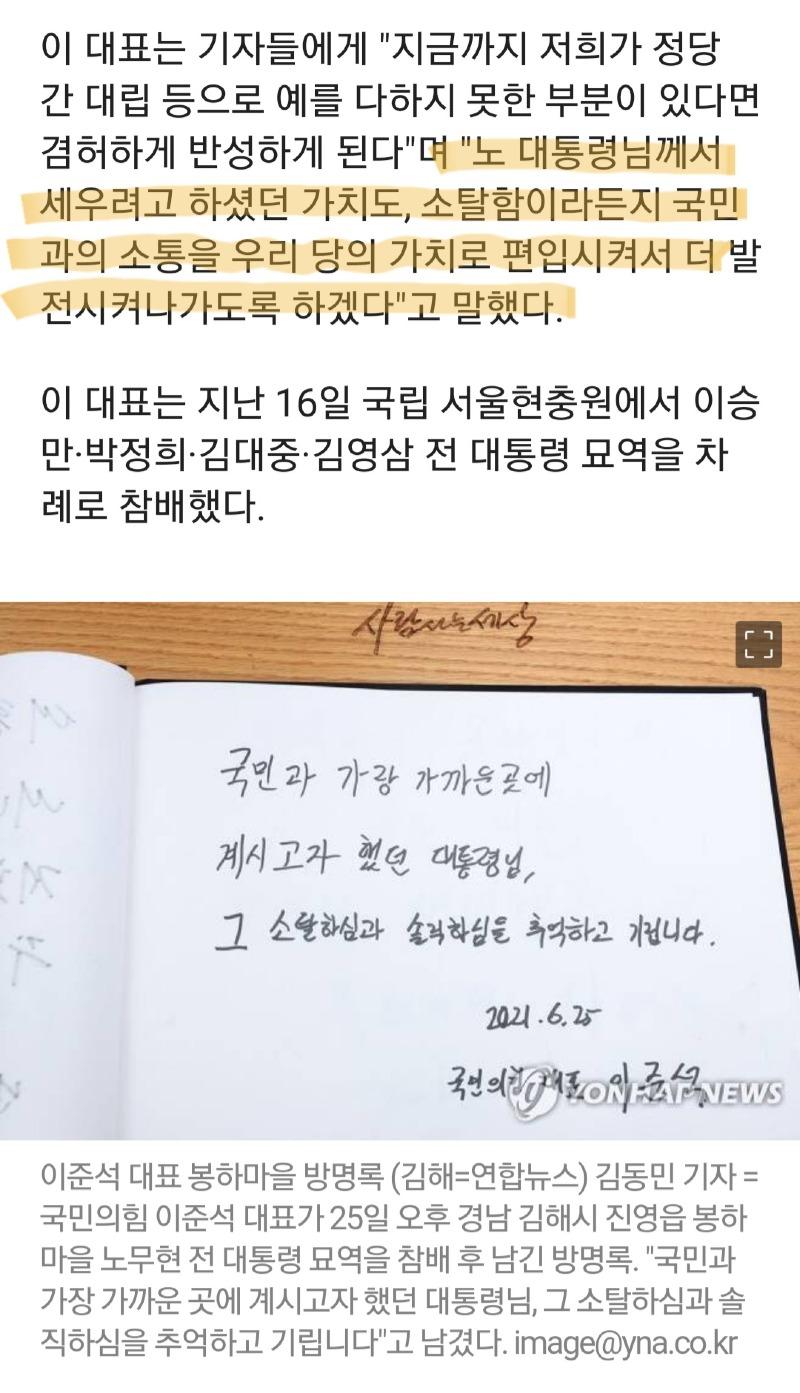 이 대표는 기자들에게 "지금까지 저희가 정당
간 대립 등으로 예를 다하지 못한 부분이 있다면
겸허하게 반성하게 된다"며 "노 대통령님께서
세우려고 하셨던 가치도, 소탈함이라든지 국민
과의 소통을 우리 당의 가치로 편입시켜서 더 발
전시켜나가도록 하겠다"고 말했다.
이 대표는 지난 16일 국립 서울현충원에서 이승
만·박정희·김대중·김영삼 전 대통령 묘역을 차
례로 참배했다.
사람사는세상
국민과 가장 가까운 곳에
계시고자 했던 대통령님,
그 소탈하심과 솔직하심을 추억하고 기립니다.
2021.6.25
국민의힘 대표 이준석
YONHAP NEWS
이준석 대표 봉하마을 방명록 (김해=연합뉴스) 김동민 기자 =
국민의힘 이준석 대표가 25일 오후 경남 김해시 진영읍 봉하
마을 노무현 전 대통령 묘역을 참배 후 남긴 방명록. "국민과
가장 가까운 곳에 계시고자 했던 대통령님, 그 소탈하심과 솔
직하심을 추억하고 기립니다"고 남겼다. image@yna.co.kr